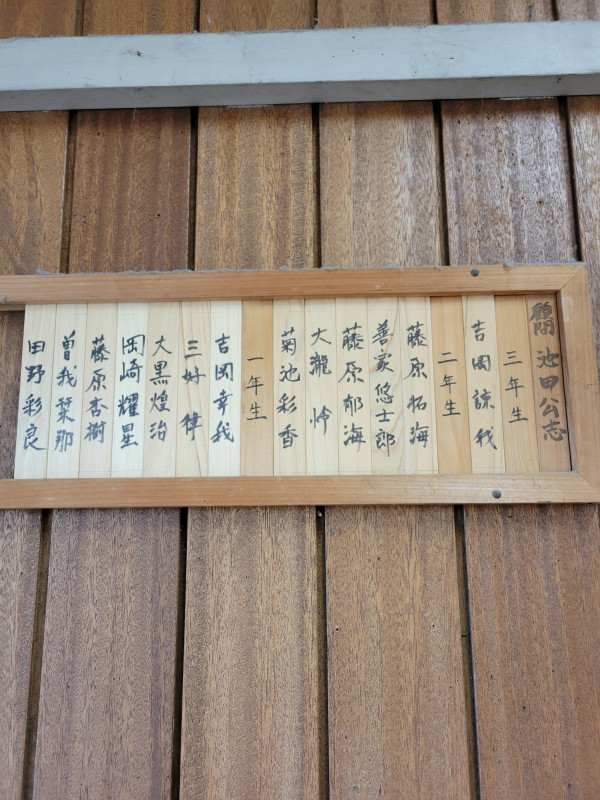 顧問 池田公志
三年生
吉岡諒我
二年生
藤原拓海
善家悠士郎
藤原郁海
大瀧怜
菊池彩香
一年生
吉岡幸我
三好律
大黒煌治
岡崎耀星
藤原杏樹
曽我栞那
田野彩良